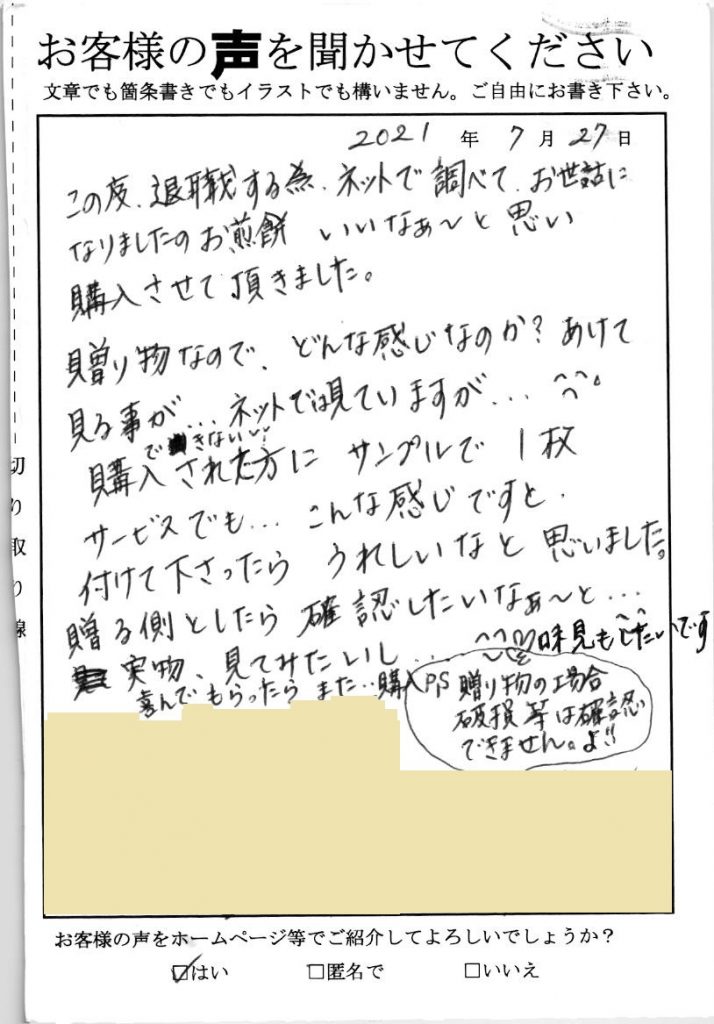 お客様の声を聞かせてください
文章でも箇条書きでもイラストでも構いません。ご自由にお書き下さい。
2021 年 7 月 27 日
この度、退職する為、ネットで調べて、お世話に
なりましたのお煎餅 いいなぁ〜と思い
購入させて頂きました。
贈り物なので、どんな感じなのか? あけて
見る事が...ネットでは見ていますが...
できない
購入された方に サンプルで 1枚
サービスでも... こんな感じですと、
付けて下さったら うれしいなと 思いました。
贈る側としたら 確認したいなぁ〜と...
実物、見てみたいし... 味見もしたいです
喜んでもらったら また..購入
P/S 贈り物の場合
破損等は確認
できません。よ!!
切り取り線
お客様の声をホームページ等でご紹介してよろしいでしょうか?
☑はい □匿名で □いいえ